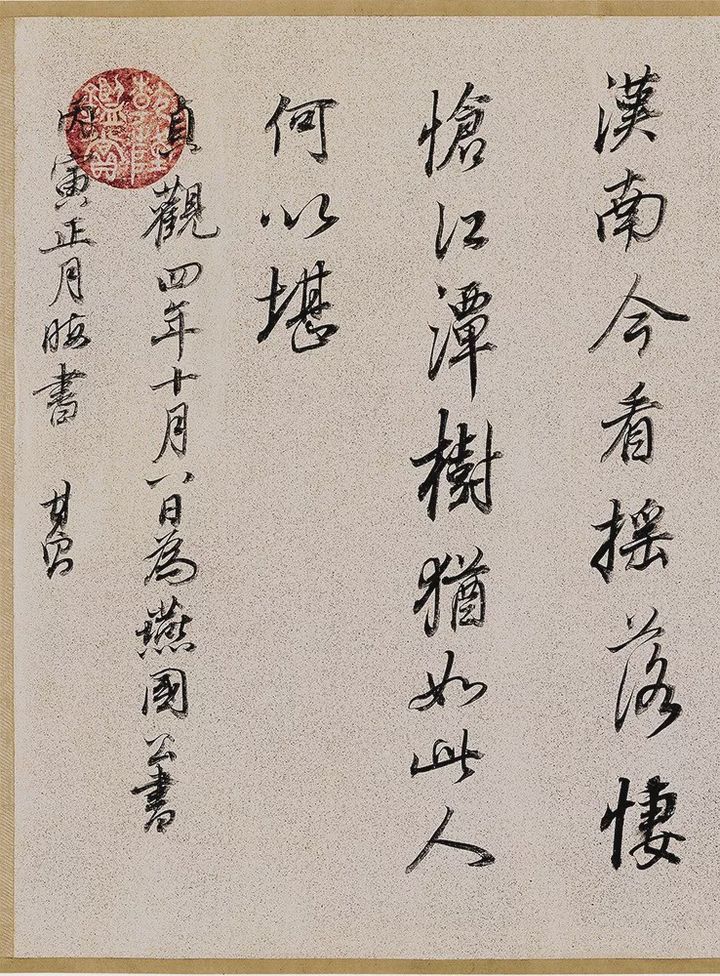 漢南今看搖落悽
愴江潭樹猶如此人
何以堪
貞觀四年十月八日為燕國公書
丙寅正月晦書
乾隆鑑賞